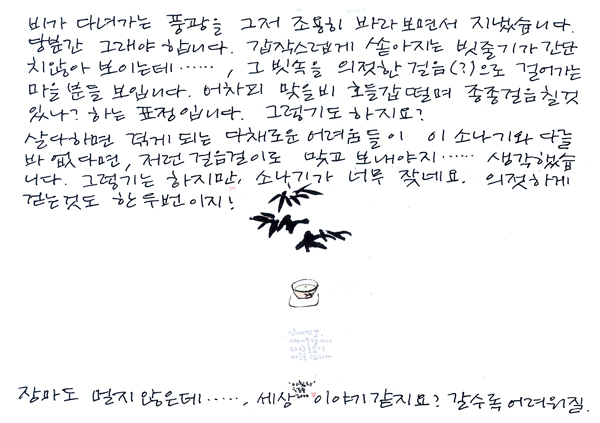 비가 다녀가는 풍광을 그저 조용히 바라보면서 지냈습니다.
당분간 그래야 합니다. 갑작스럽게 쏟아지는 빗줄기가 간단
치않아 보이는데……, 그 빗속을 의젓한 걸음(?)으로 걸어가는
마을분들 보입니다. 어차피 맞을비 호들갑 떨며 종종걸음칠것
있나? 하는 표정입니다. 그렇기도 하지요?
살다하면 겪게 되는 다채로운 어려움들이 이 소나기와 다를
바 없다면, 저런 걸음걸이로 맞고 보내야지…… 생각했습
니다. 그렇기는 하지만, 소나기가 너무 잦네요. 의젓하게
걷는것도 한두번이지!
장마도 멀지않은데……, 세상 이야기같지요? 갈수록어려워질.